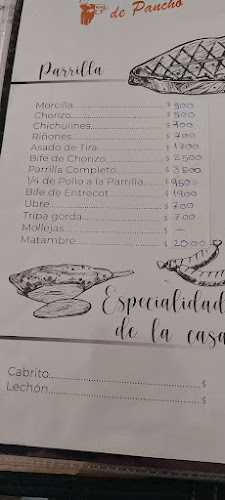 de Pancho
Parrilla
Morcilla $ 500
Chorizo $ 500
Chichulines $ 700
Riñones $ 700
Asado de Tira $ 1700
Bife de Chorizo $ 2500
Parrilla Completo $ 3500
1/4 de Pollo a la Parrilla $ 950
Bife de Entrecot $ 1900
Ubre $ 700
Tripa gorda $ 700
Mollejas $ —
Matambre $ 2000
Especialidad
de la casa
Cabrito $
Lechón $